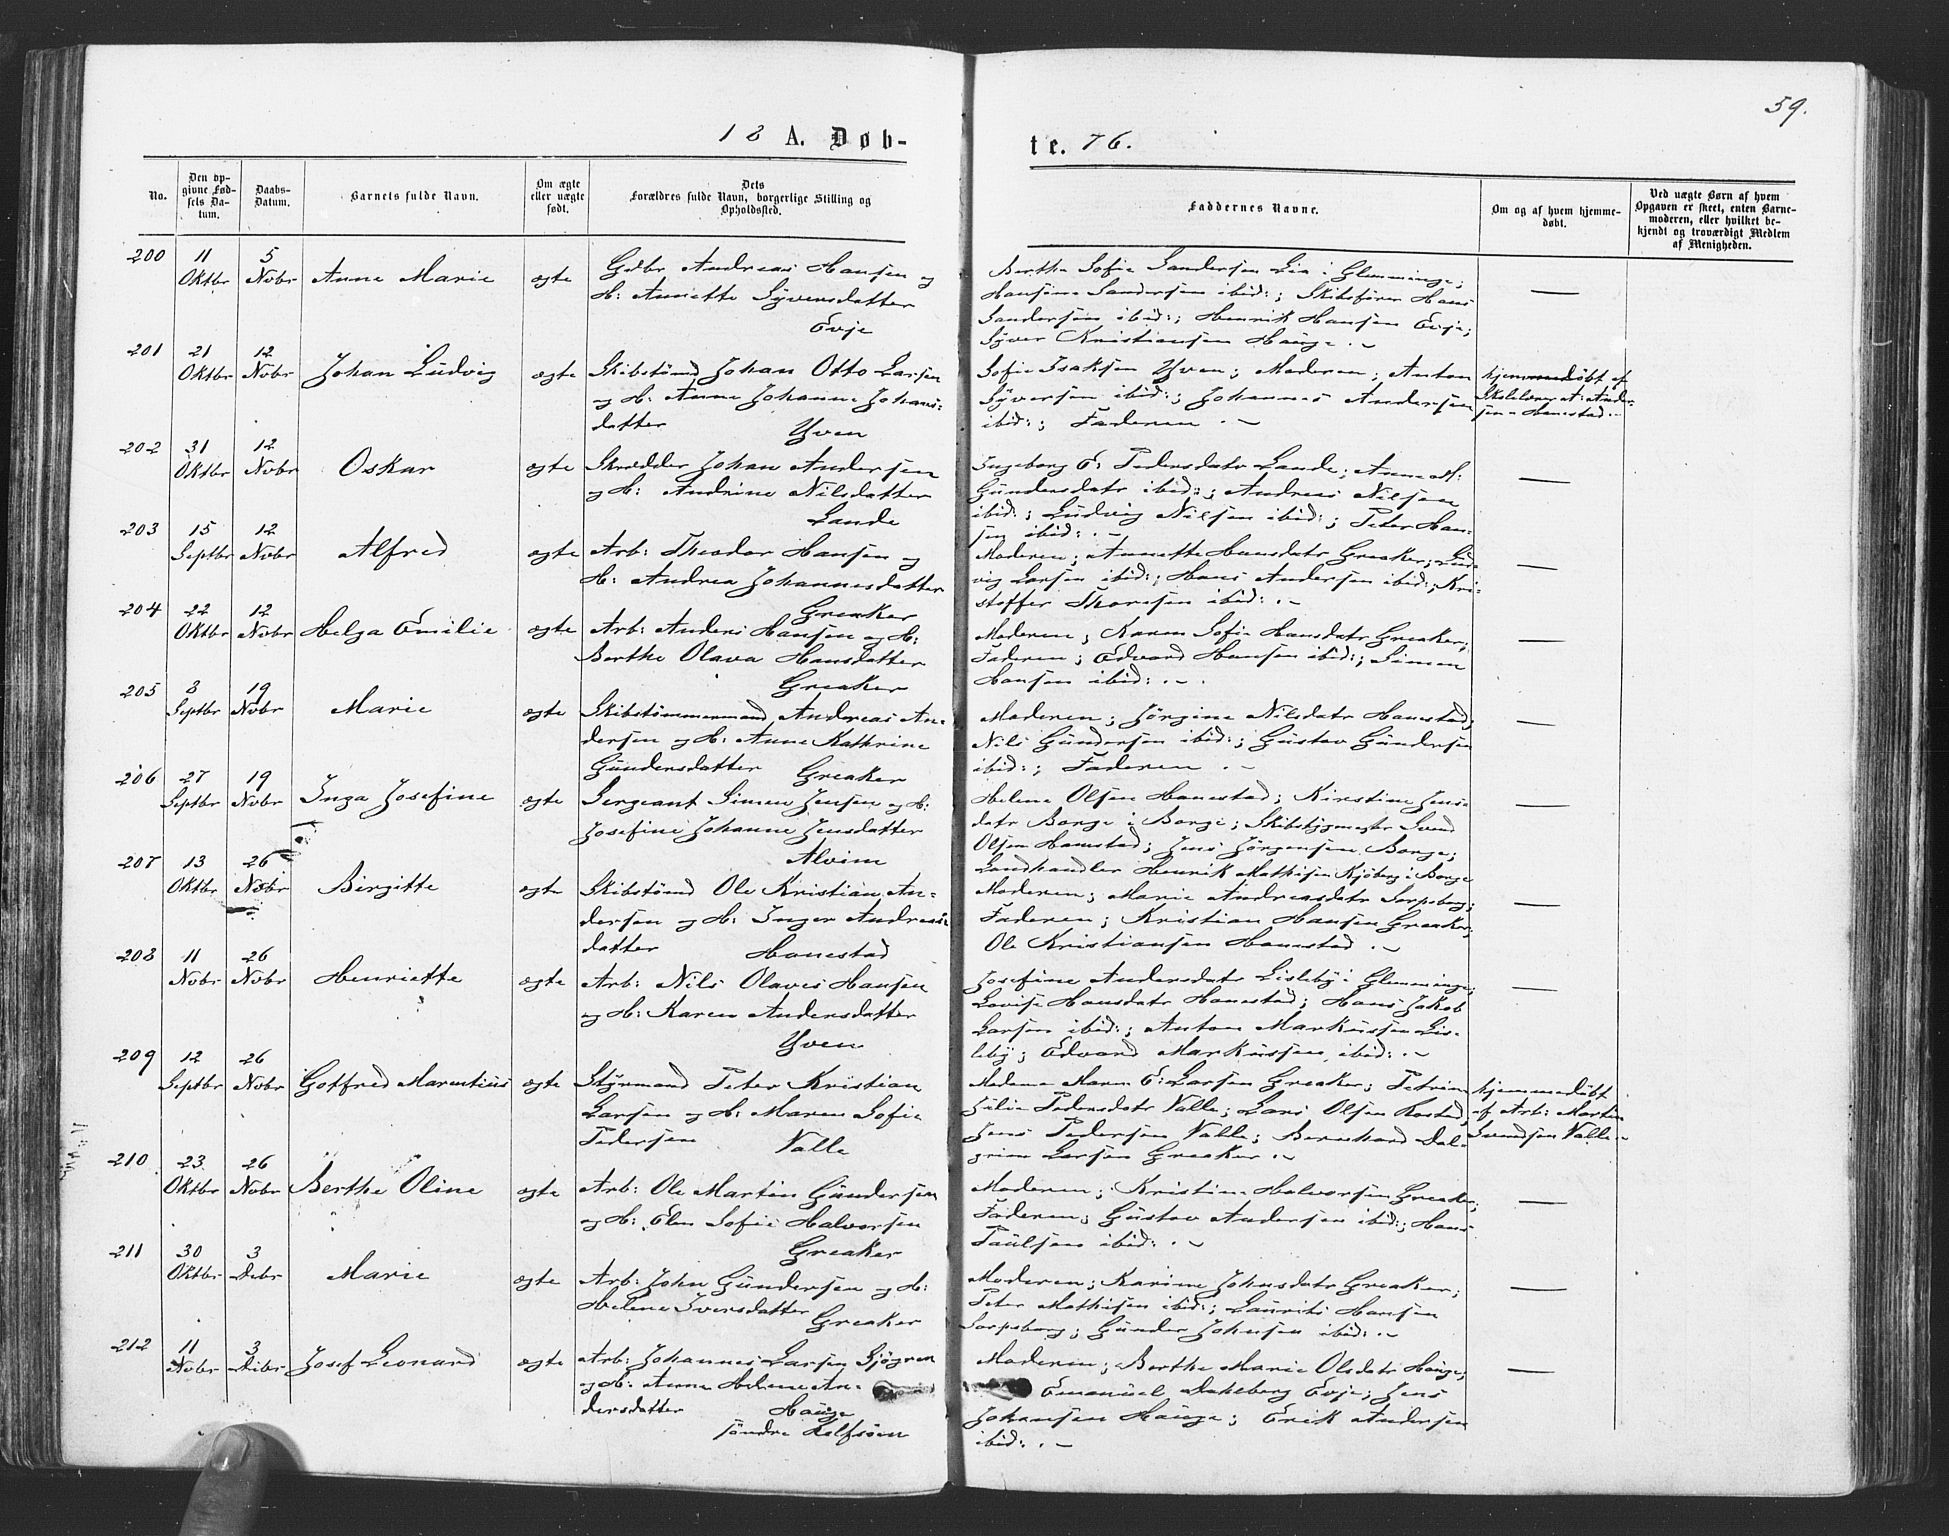 59.
18 A. Døb-
te. 76.
No.
Den op-
givne Fød-
sels Da-
tum.
Daabs-
Datum.
Barnets fulde Navn.
Om ægte
eller uægte
født.
Dets
Forældres fulde Navn, borgerlige Stilling og
Opholdssted.
Faddernes Navne.
Om og af hvem hjemme-
døbt.
Ved uægte Børn af hvem
Opgaven er skeet, enten Barne-
moderen, eller hvilket be-
kjendt og troværdigt Medlem
af Menigheden.
200 11 Oktbr 5 Nvbr Anne Marie ægte
Gdbr Andreas Hansen og
H: Annette Syversdatter
Evje
Berthe Sofie Sandersen Lia i Glemminge;
Hansine Sandersen ibid:; Skibsfører Hans
Sandersen ibid:; Henrik Hansen Evje;
Syver Kristiansen Hauge.
—
201 21 Oktbr 12 Nvbr Johan Ludvig ægte
Skibstømd Johan Otto Larsen
og H: Anne Johanne Johans:
datter Yven
Sofie Isaksen Yven; Moderen; Anton
Syversen ibid:; Johannes Andersen
ibid:; Faderen.
hjemmedøbt af
Skolelærer A: Ander-
sen Hanestad.
202 31 Oktbr 12 Nvbr Oskar ægte
Skrædder Johan Andersen
og H: Andrine Nilsdatter
Lande
Ingeborg E: Pedersdatr Lande; Anne M:
Gundersdatr ibid:; Andreas Nilsen
ibid:; Ludvig Nilsen ibid:; Peter Han-
sen ibid:.
—
203 15 Septbr 12 Nvbr Alfred ægte
Arb: Theodor Hansen og
H: Andrea Johannesdatter
Greaker
Moderen; Annette Hansdatr Greaker; Lud-
vig Larsen ibid:; Hans Andersen ibid:; Kri-
stoffer Thoresen ibid:.
—
204 22 Oktbr 12 Nvbr Helga Emilie ægte
Arb: Anders Hansen og H:
Berthe Olava Hansdatter
Greaker
Moderen; Karen Sofie Hansdatr Greaker;
Faderen; Edvard Hansen ibid:; Simen
Hansen ibid:.
—
205 8 Septbr 19 Nvbr Marie ægte
Skibstømmermand Andreas An-
dersen og H: Anne Kathrine
Gundersdatter Greaker
Moderen; Jørgine Nilsdatr Hanestad;
Nils Gundersen ibid:; Gustav Gundersen
ibid:; Faderen.
—
206 27 Septbr 19 Nvbr Inga Josefine ægte
Sergeant Simen Jensen og H:
Josefine Johanne Jensdatter
Alvim
Helene Olsen Hanestad; Kirstine Jens-
datr Borge i Borge; Skibstygmester Svend
Olsen Hanestad; Jens Jørgensen Borge;
Landhandler Henrik Mathisen Kjøberg i Borge
—
207 13 Oktbr 26 Nvbr Birgitte ægte
Skibstømd Ole Kristian An-
dersen og H: Inger Andreas-
datter Hanestad
Moderen; Marie Andreasdatr Sarpsborg;
Faderen; Kristian Hansen Greaker;
Ole Kristiansen Hanestad.
—
208 11 Nvbr 26 Nvbr Henriette ægte
Arb: Nils Olaves Hansen
og H: Karen Andersdatter
Yven
Josefine Andersdatr Lisleby i Glemminge;
Lovise Hansdatr Hanestad; Hans Jakob
Larsen ibid:; Anton Markussen Lis-
leby; Edvard Markussen ibid:.
—
209 12 Septbr 26 Nvbr Gotfred Marentius ægte
Styrmand Peter Kristian
Larsen og H: Maren Sofie
Pedersen Valle
Madame Maren E: Larsen Greaker; Petrine
Julie Pedersdatr Valle; Lars Olsen
Jens Pedersen Valle; Bernhard Dal-
grim Larsen Greaker.
hjemmedøbt
af Arb: Martin
Svendsen Valle
210 23 Oktbr 26 Nvbr Berthe Oline ægte
Arb: Ole Martin Gundersen
og H: Elen Sofie Halvorsen
Greaker
Moderen; Kristine Halvorsen Greaker;
Faderen; Gustav Andersen ibid:; Hans
Paulsen ibid:.
—
211 30 Oktbr 3 Debr Marie ægte
Arb: John Gundersen og H:
Helene Iversdatter
Greaker
Moderen; Karine Johnsdatr Greaker;
Peter Mathisen ibid:; Laurits Hansen
Sarpsborg; Gunder Johnsen ibid:.
—
212 11 Nvbr 3 Debr Josef Leonard ægte
Arb: Johannes Larsen Sjøgren
og H: Anne Helene An-
dersdatter Hauge
søndre
Moderen; Berthe Marie Olsdatr Hauge;
Emanuel Dahlborg Evje; Jens
Johansen Hauge; Erik Andersen
ibid:.
—